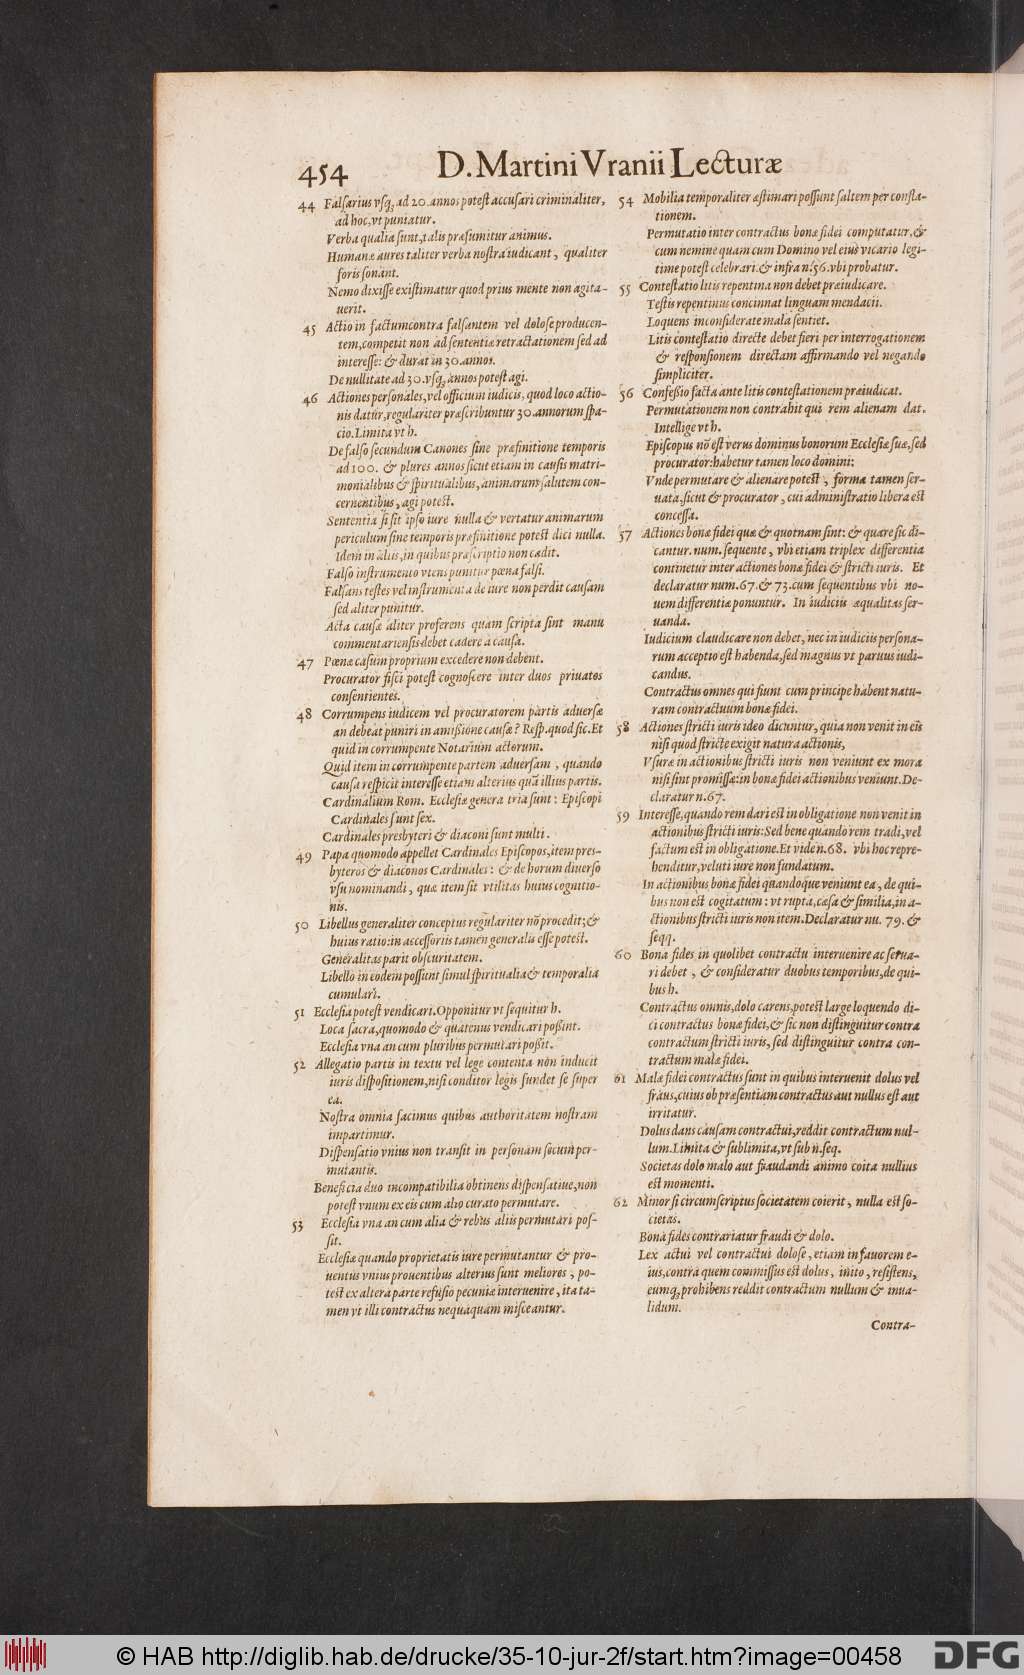 454 D. Martini Vranii Lecturæ
44 Falſarius vſq; ad 20. annos poteſt accuſari criminaliter,
ad hoc, vt puniatur.
Verba qualia ſunt, talis præſumitur animus.
Humanæ aures taliter verba noſtra iudicant, qualiter
foris ſonant.
Nemo dixiſſe exiſtimatur quod prius mente non agita-
uerit.
45 Actio in factum contra falſantem vel doloſe producen-
tem, competit non ad ſententiæ retractationem ſed ad
intereſſe: & durat in 30. annos.
De nullitate ad 30. vſq; annos poteſt agi.
46 Actiones perſonales, vel officium iudicis, quod loco actio-
nis datur, regulariter præſcribuntur 30. annorum ſpa-
cio. Limita vt h.
De falſo ſecundum Canones ſine præfinitione temporis
ad 100. & plures annos ſicut etiam in cauſis matri-
monialibus & ſpiritualibus, animarum ſalutem con-
cernentibus, agi poteſt.
Sententia ſi ſit ipſo iure nulla & vertatur animarum
periculum ſine temporis præfinitione poteſt dici nulla.
Idem in aliis, in quibus præſcriptio non cadit.
Falſo inſtrumento vtens punitur pœna falſi.
Falſans teſtes vel inſtrumenta de iure non perdit cauſam
ſed aliter punitur.
Acta cauſæ aliter proferens quam ſcripta ſint manu
commentarienſis debet cadere à cauſa.
47 Pœnæ caſum proprium excedere non debent.
Procurator fiſci poteſt cognoſcere inter duos priuatos
conſentientes.
48 Corrumpens iudicem vel procuratorem partis aduerſæ
an debeat puniri in amiſſione cauſæ? Reſp. quod ſic. Et
quid in corrumpente Notarium actorum.
Quid item in corrumpente partem aduerſam, quando
cauſa reſpicit intereſſe etiam alterius quā illius partis.
Cardinalium Rom. Eccleſiæ genera tria ſunt: Epiſcopi
Cardinales ſunt ſex.
Cardinales presbyteri & diaconi ſunt multi.
49 Papa quomodo appellet Cardinales Epiſcopos, item pres-
byteros & diaconos Cardinales: & de horum diuerſo
vſu nominandi, quæ item ſit vtilitas huius cognitio-
nis.
50 Libellus generaliter conceptus regulariter nō procedit; &
huius ratio: in acceſſoriis tamen generalis eſſe poteſt.
Generalitas parit obſcuritatem.
Libello in eodem poſſunt ſimul ſpiritualia & temporalia
cumulari.
51 Eccleſia poteſt vendicari. Opponitur vt ſequitur h.
Loca ſacra, quomodo & quatenus vendicari poſſint.
Eccleſia vna an cum pluribus permutari poſſit.
52 Allegatio partis in textu vel lege contenta non inducit
iuris diſpoſitionem, niſi conditor legis fundet ſe ſuper
ea.
Noſtra omnia facimus quibus authoritatem noſtram
impartimur.
Diſpenſatio vnius non tranſit in perſonam ſecum per-
mutantis.
Beneficia duo incompatibilia obtinens diſpenſatiue, non
poteſt vnum ex eis cum alio curato permutare.
53 Eccleſia vna an cum alia & rebus aliis permutari poſ-
ſit.
Eccleſiæ quando proprietatis iure permutantur & pro-
uentus vnius prouentibus alterius ſunt meliores, po-
teſt ex altera parte refuſio pecuniæ interuenire, ita ta-
men vt illi contractus nequaquam miſceantur.
54 Mobilia temporaliter æſtimari poſſunt ſaltem per conſta-
tionem.
Permutatio inter contractus bonæ fidei computatur, &
cum nemine quam cum Domino vel eius vicario legi-
time poteſt celebrari. & infra n. 56. vbi probatur.
55 Conteſtatio litis repentina non debet præiudicare.
Teſtis repentinus concinnat linguam mendacii.
Loquens inconſiderate mala ſentiet.
Litis conteſtatio directe debet fieri per interrogationem
& reſponſionem directam affirmando vel negando
ſimpliciter.
56 Confeſſio facta ante litis conteſtationem præiudicat.
Permutationem non contrahit qui rem alienam dat.
Intellige vt h.
Epiſcopus nō eſt verus dominus bonorum Eccleſiæ ſuæ, ſed
procurator: habetur tamen loco domini:
Vnde permutare & alienare poteſt, forma tamen ſer-
uata, ſicut & procurator, cui adminiſtratio libera eſt
conceſſa.
57 Actiones bonæ fidei quæ & quotnam ſint: & quare ſic di-
cantur. num. ſequente, vbi etiam triplex differentia
continetur inter actiones bonæ fidei & ſtricti iuris. Et
declaratur num. 67. & 73. cum ſequentibus vbi no-
uem differentiæ ponuntur. In iudiciis æqualitas ſer-
uanda.
Iudicium claudicare non debet, nec in iudiciis perſona-
rum acceptio eſt habenda, ſed magnus vt paruus iudi-
candus.
Contractus omnes qui fiunt cum principe habent natu-
ram contractuum bonæ fidei.
58 Actiones ſtricti iuris ideo dicuntur, quia non venit in eis
niſi quod ſtricte exigit natura actionis,
Vſuræ in actionibus ſtricti iuris non veniunt ex mora
niſi ſint promiſſæ: in bonæ fidei actionibus veniunt. De-
claratur n. 67.
59 Intereſſe, quando rem dari eſt in obligatione non venit in
actionibus ſtricti iuris: Sed bene quando rem tradi, vel
factum eſt in obligatione. Et vide n. 68. vbi hoc repre-
henditur, veluti iure non fundatum.
In actionibus bonæ fidei quandoque veniunt ea, de qui-
bus non eſt cogitatum: vt rupta, cæſa & ſimilia, in a-
ctionibus ſtricti iuris non item. Declaratur nu. 79. &
ſeqq.
60 Bona fides in quolibet contractu interuenire ac ſerua-
ri debet, & conſideratur duobus temporibus, de qui-
bus h.
Contractus omnis, dolo carens, poteſt large loquendo di-
ci contractus bonæ fidei, & ſic non diſtinguitur contra
contractum ſtricti iuris, ſed diſtinguitur contra con-
tractum malæ fidei.
61 Malæ fidei contractus ſunt in quibus interuenit dolus vel
fraus, cuius ob præſentiam contractus aut nullus eſt aut
irritatur.
Dolus dans cauſam contractui, reddit contractum nul-
lum. Limita & ſublimita, vt ſub n. ſeq.
Societas dolo malo aut fraudandi animo coita nullius
eſt momenti.
62 Minor ſi circumſcriptus ſocietatem coierit, nulla eſt ſo-
cietas.
Bona fides contrariatur fraudi & dolo.
Lex actui vel contractui doloſe, etiam in fauorem e-
ius, contra quem commiſſus eſt dolus, inito, reſiſtens,
eumq; prohibens reddit contractum nullum & inua-
lidum.
Contra-
© HAB http://diglib.hab.de/drucke/35-10-jur-2f/start.htm?image=00458
DFG